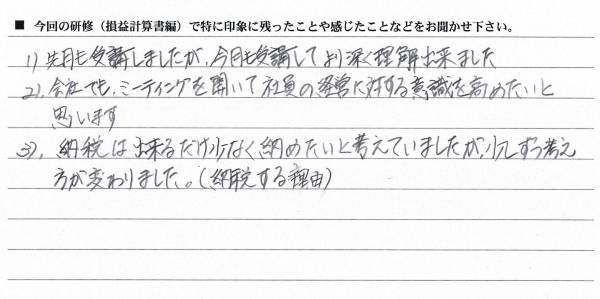 ■ 今回の研修（損益計算書編）で特に印象に残ったことや感じたことなどをお聞かせ下さい。
1) 先月も受講しましたが、今月も受講してより深く理解出来ました
2). 会社でも、ミーティングを開いて社員の経営に対する意識を高めたいと
思います
3). 納税は出来るだけ少なく納めたいと考えていましたが、少しずつ考え
方が変わりました。（納税する理由）